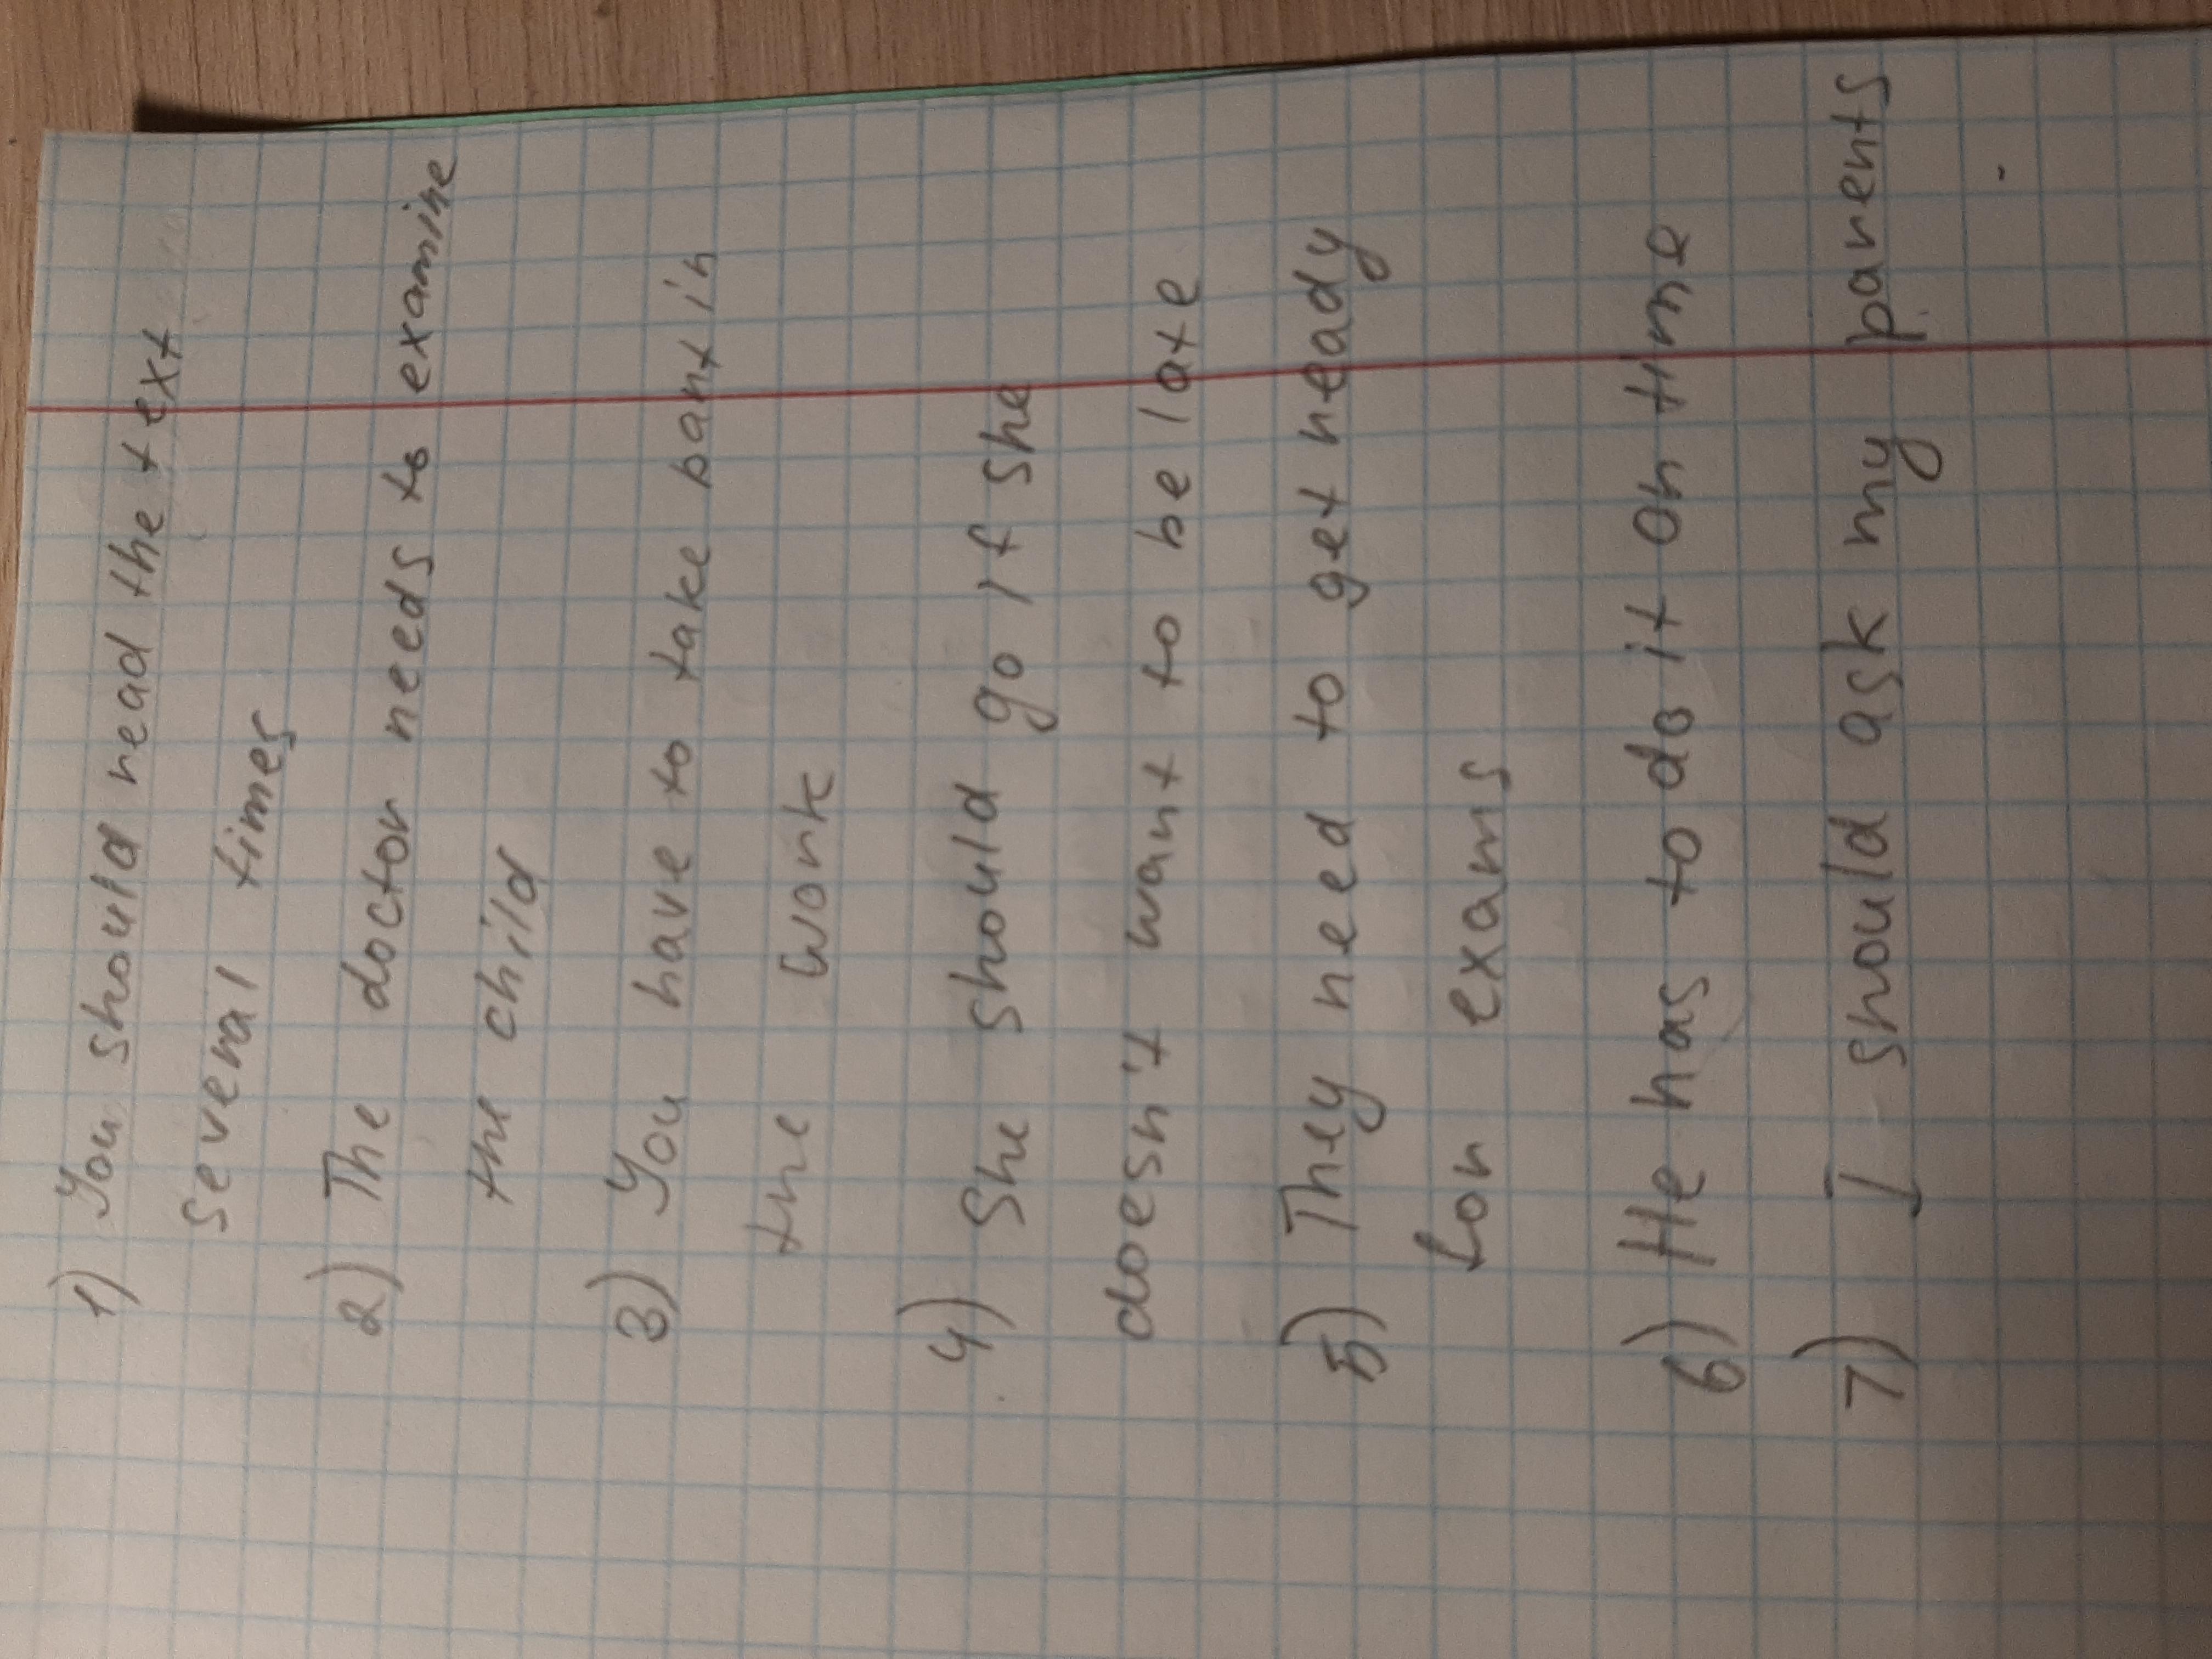 1) You should read the text
several times
2) The doctor needs to examine
the child
3) You have to take part in
the work
4) She should go if she
doesn't want to be late
5) They need to get ready
for exams
6) He has to do it on time
7) I should ask my parents